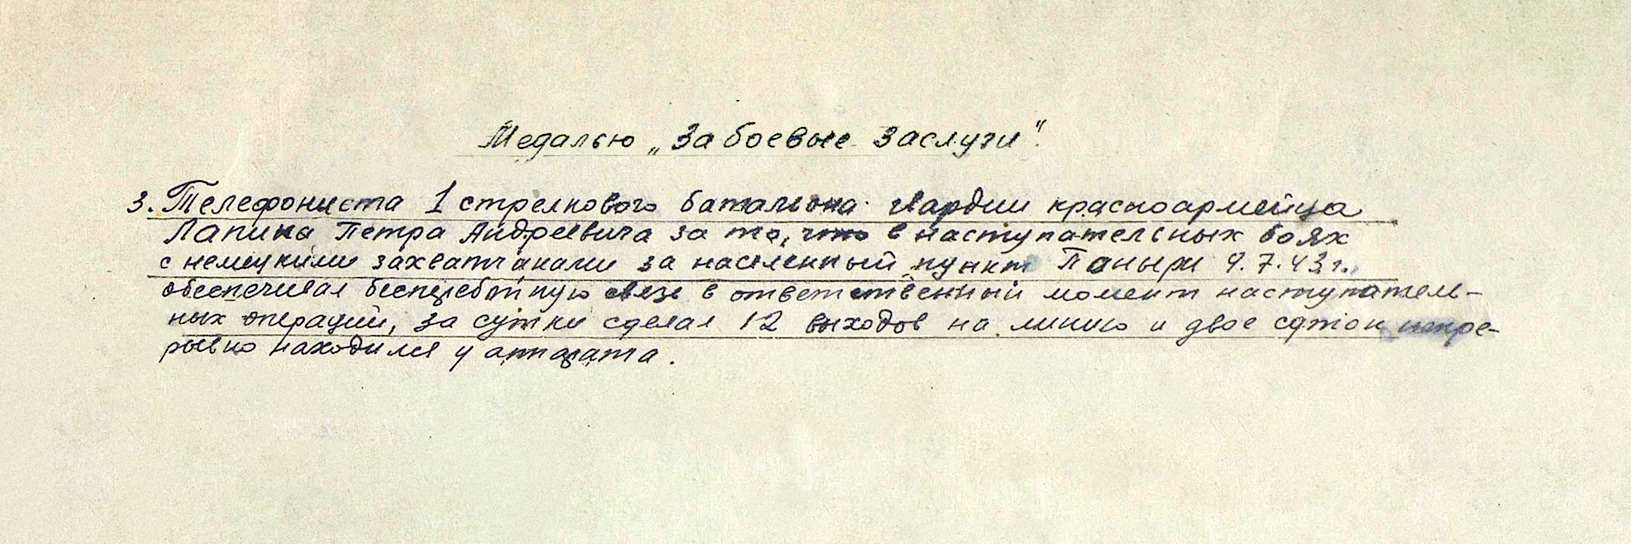 Медалью „За боевые заслуги".
3. Телефониста 1 стрелкового батальона гвардии красноармейца
Лапина Петра Андреевича за то, что в наступательных боях
с немецкими захватчиками за населенный пункт Паныри 9.7.43 г.,
обеспечивал бесперебойную связь в ответственный момент наступатель-
ных операций, за сутки сделал 12 выходов на линию и двое суток непре-
рывно находился у аппарата.